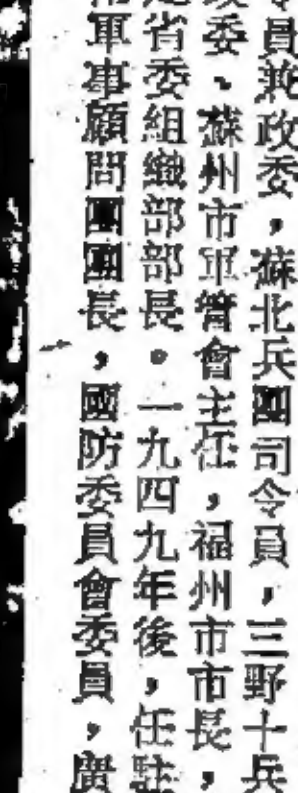 員兼政委，蘇北兵團司令員，三野十兵
委、蘇州市軍管會主任，福州市市長，
省委組織部部長。一九四九年後，任駐
軍事顧問團團長，國防委員會委員，廣